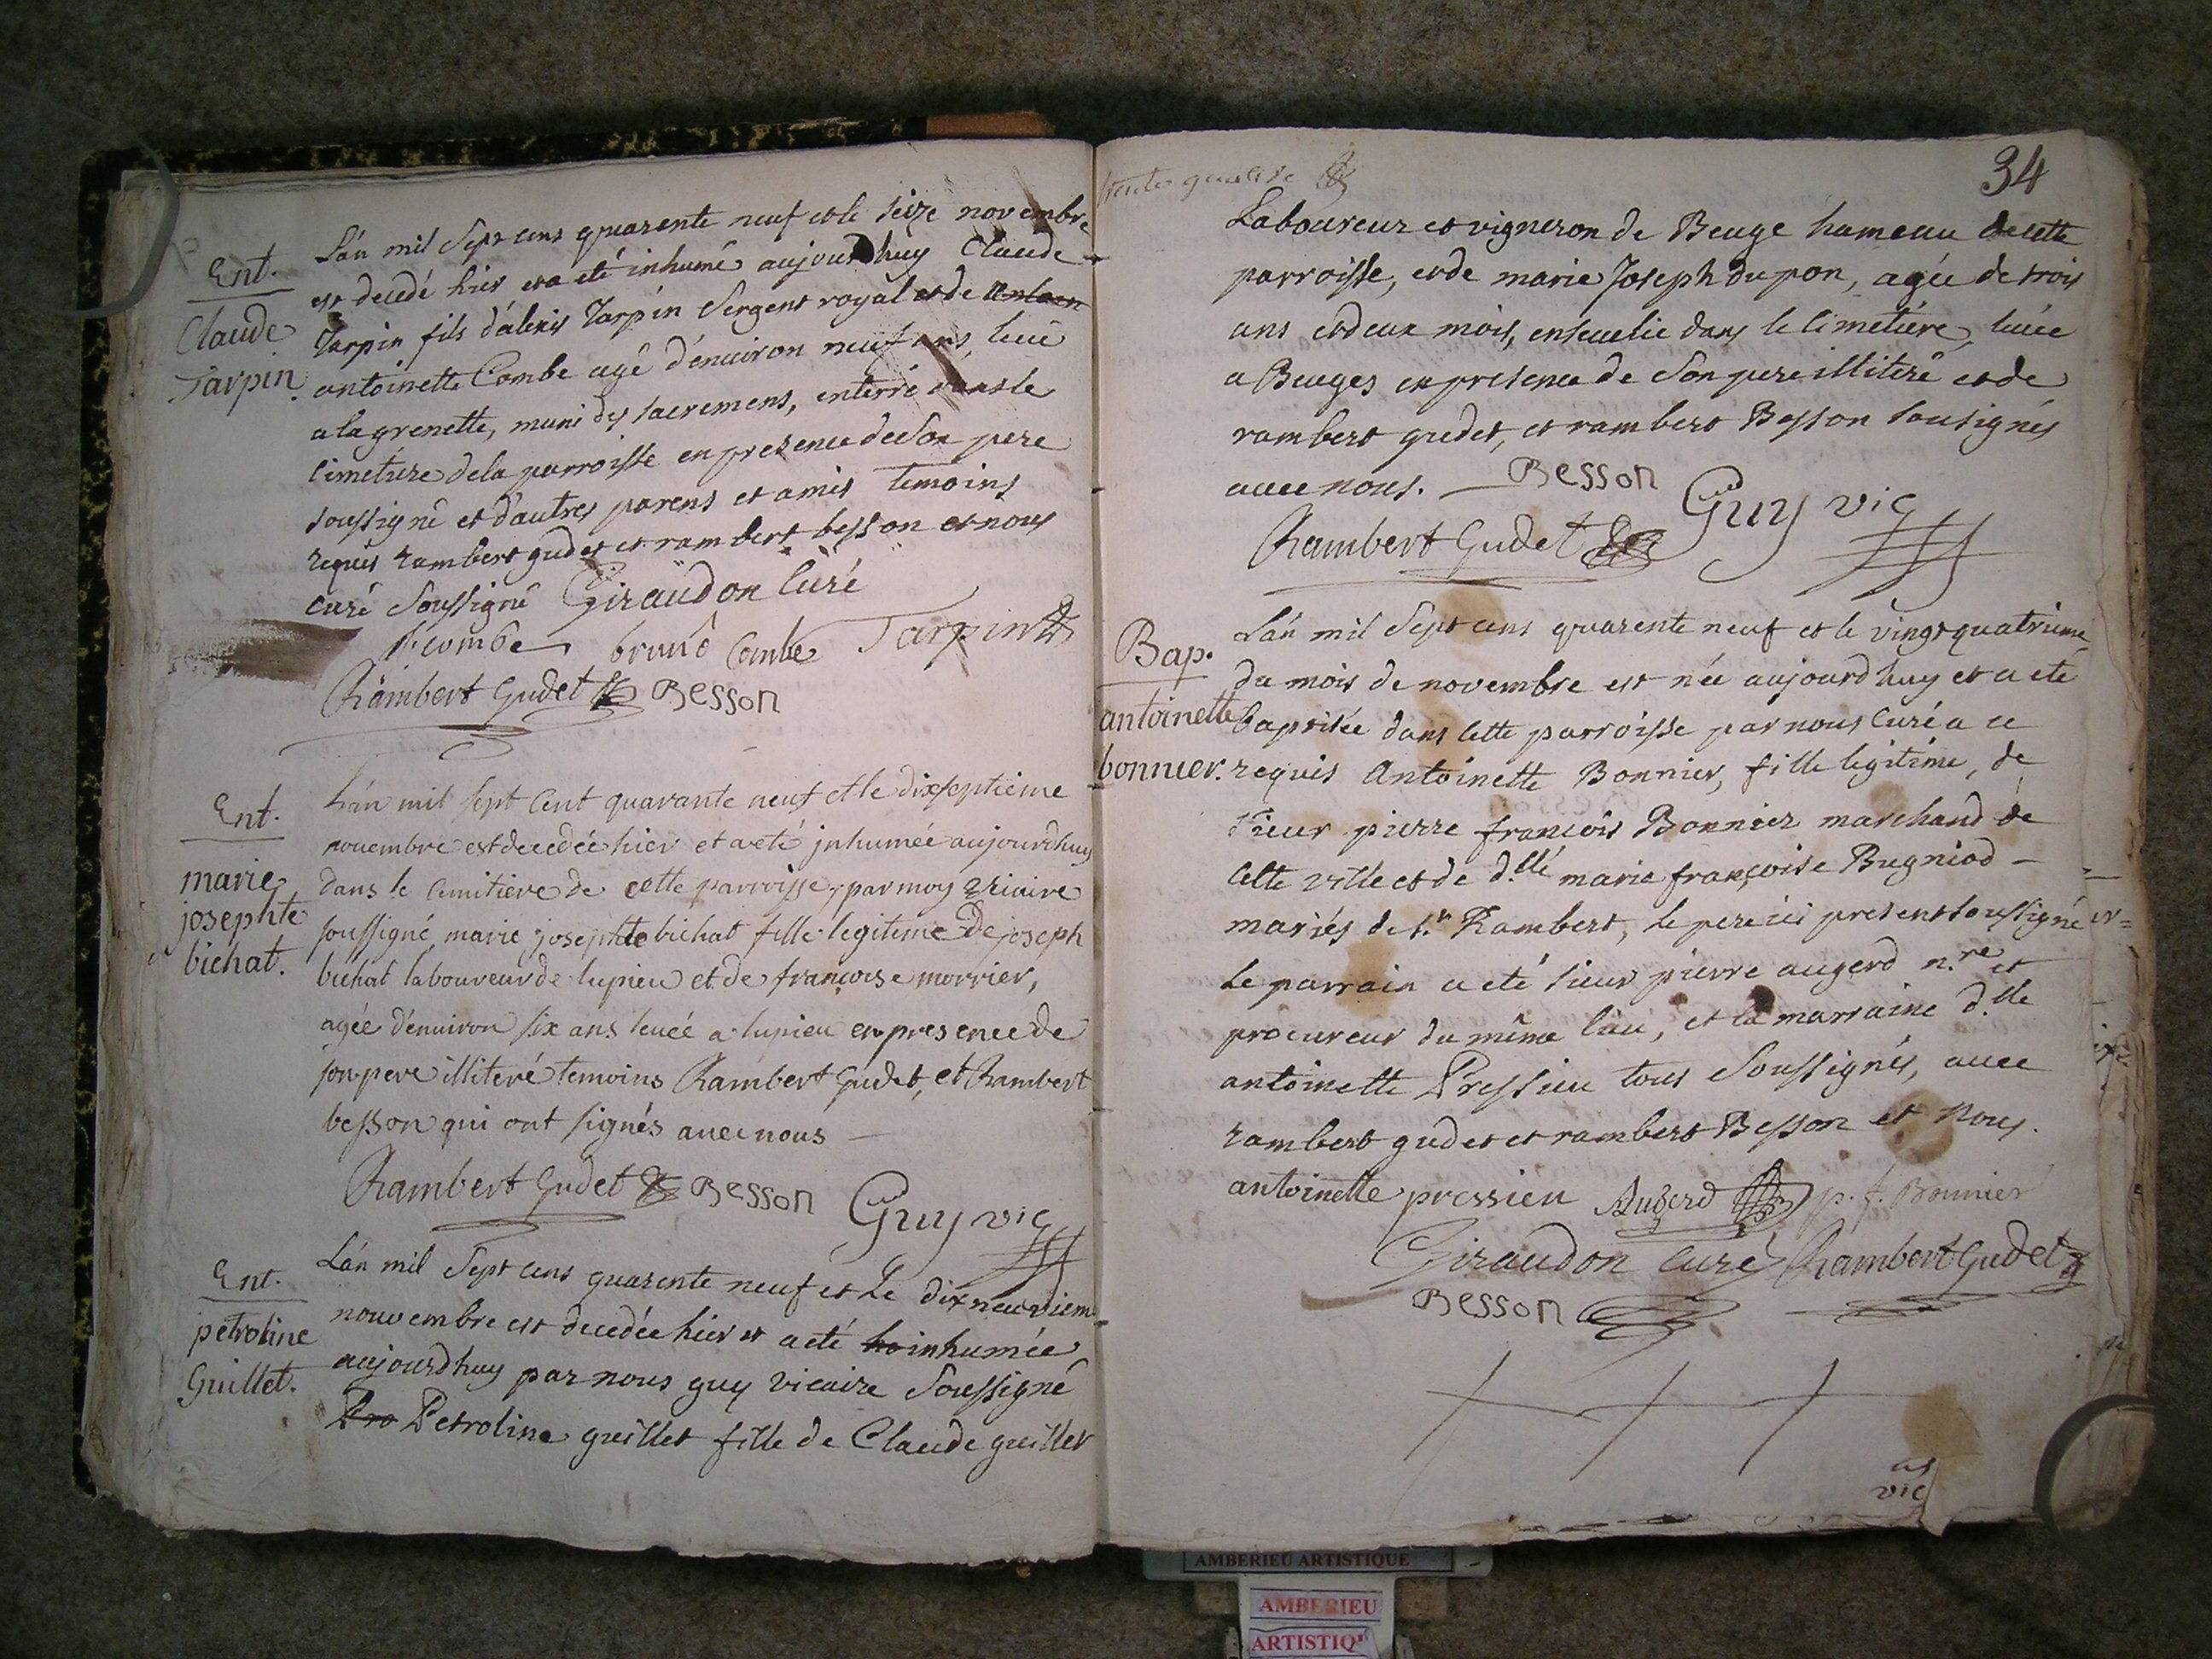 Ent.
Claude
Tarpin.
L'an mil Sept cens quarente neuf et le seize novembre
est decedé hier et a eté inhumé aujourdhuy Claude
Tarpin fils d'alexis Tarpin Sergent royal et de
antoinette Combe agé d'enuiron neuf ans, leué
a la grenette, muni des sacremens, enterré dans le
cimetiere de la parroisse en presence de Son pere
soussigné et d'autres parens et amis temoins
requis rambert gudet et rambert besson et nous
curé Soussigné Giraudon Curé
combe bruno Combe Tarpin
Rambert Gudet Besson
Ent.
marie
josephte
bichat.
L'an mil sept cent quarante neuf et le dixseptième
nouembre est decedée hier et a eté jnhumée aujourdhuy
dans le cemitière de cette parroisse, par moy vicaire
soussigné marie josephte bichat fille legitime De joseph
bichat laboureur de lupieu et de françoise morrier,
agée d'enuiron six ans leuée a lupieu en presence de
son pere illiteré temoins Rambert Gudet, et Rambert
besson qui ont signés auec nous
Rambert Gudet Besson Guy vic
Ent.
petroline
Guillet.
L'an mil Sept cens quarente neuf et Le dixneuviem
nouvembre est decedée hier et a eté ho inhumée
aujourdhuy par nous guy vicaire Soussigné
Pro Petroline guillet fille de Claude guillet
34
Laboureur et vigneron de Beuge hameau de cette
parroisse, et de marie Joseph dupon, agée de trois
ans et deux mois, enseuelie dans le Cimetiére, leuée
a Beuges en presence de Son pere illiteré et de
rambert gudet, et rambert Besson sousignés
auec nous. Besson
Guy vic
Rambert Gudet
Bap.
antoinette
bonnier.
L'an mil Sept cens quarente neuf et le vingt quatrieme
du mois de novembre est née aujourdhuy et a eté
baptisée dans cette parroisse par nous Curé a ce
requis Antoinette Bonnier, fille legitime, de
sieur pierre françois Bonnier marchand de
cette ville et de d.lle marie françoise Bugniod
mariés de st. Rambert, le pere ici present soussigné
Le parrain a eté sieur pierre augerd n.re et
procureur du même lieu, et la marraine d.lle
antoinette Pressieu tous Soussignés, auec
rambert gudet et rambert Besson et nous.
antoinette pressieu Augerd p. f. Bonnier
Giraudon curé Rambert Gudet
Besson
vic
AMBERIEU ARTISTIQUE
AMBERIEU
ARTISTIQ